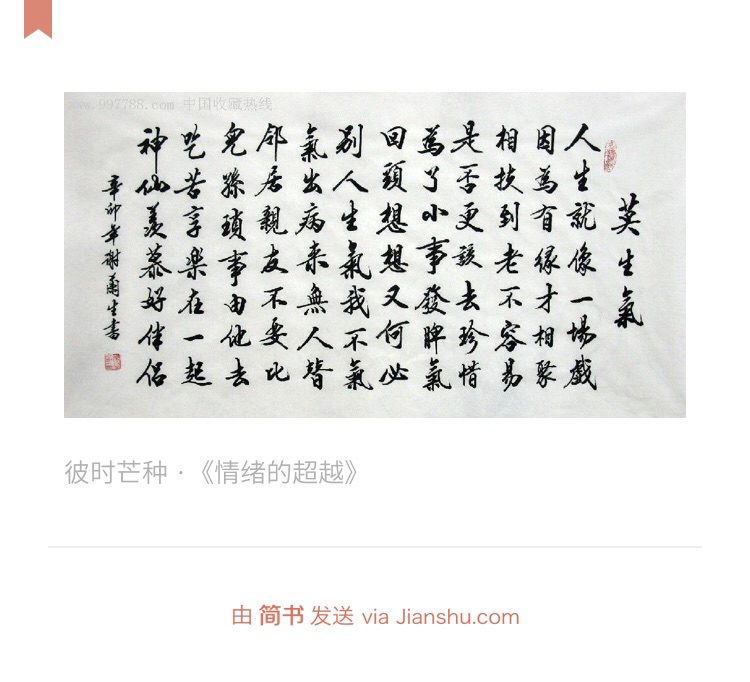 www.997788.com 中国收藏热线
莫生氣
人生就像一場戲
因為有緣才相聚
相扶到老不容易
是否更該去珍惜
為了小事發脾氣
回頭想想又何必
别人生氣我不氣
氣出病来無人替
邻居親友不要比
兒孫瑣事由他去
吃苦享樂在一起
神仙羨慕好伴侣
辛卯年谢爾生書
彼时芒种 ·《情绪的超越》
由 简书 发送 via Jianshu.com